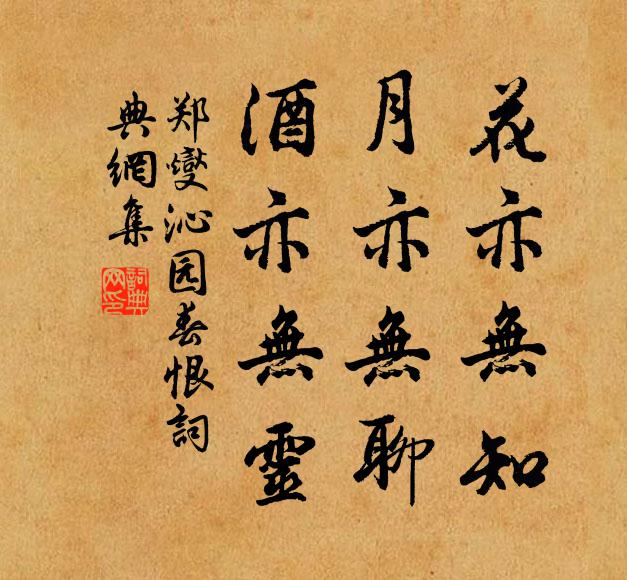 花亦無知
月亦無聊
酒亦無靈
郑燮沁园春恨詞
典網集
詞典网印